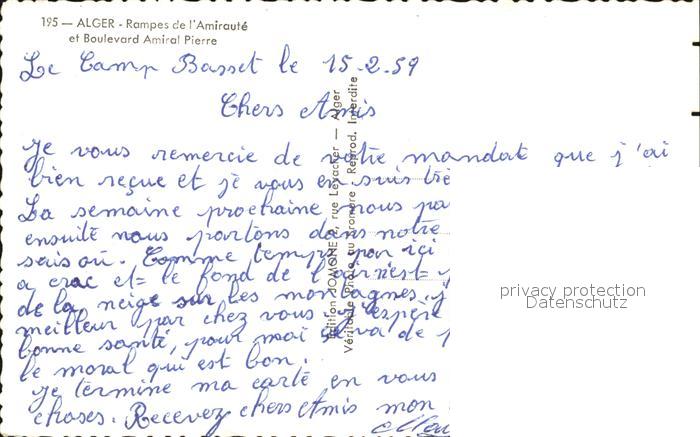 195 — ALGER - Rampes de l'Amirauté
et Boulevard Amiral Pierre
Le Camp Basset le 15-2-59
Chers Amis
Je vous remercie de votre mandat que j'ai
bien reçue et je vous en suis trè
La semaine prochaine nous pa
ensuite nous partons dans notre
sais où. Comme temps par ici
a crac et = le fond de l'air n'est =
de la neige sur les montagnes, j
meilleur par chez vous. J'espère
bonne santé, pour moi ça va de
le moral qui est bon.
Je termine ma carte en vous
choses. Recevez chers Amis mon
Edition JOMONE, rue Levacher — Alger
Véritable Photo au bromure - Reprod. Interdite
privacy protection
Datenschutz